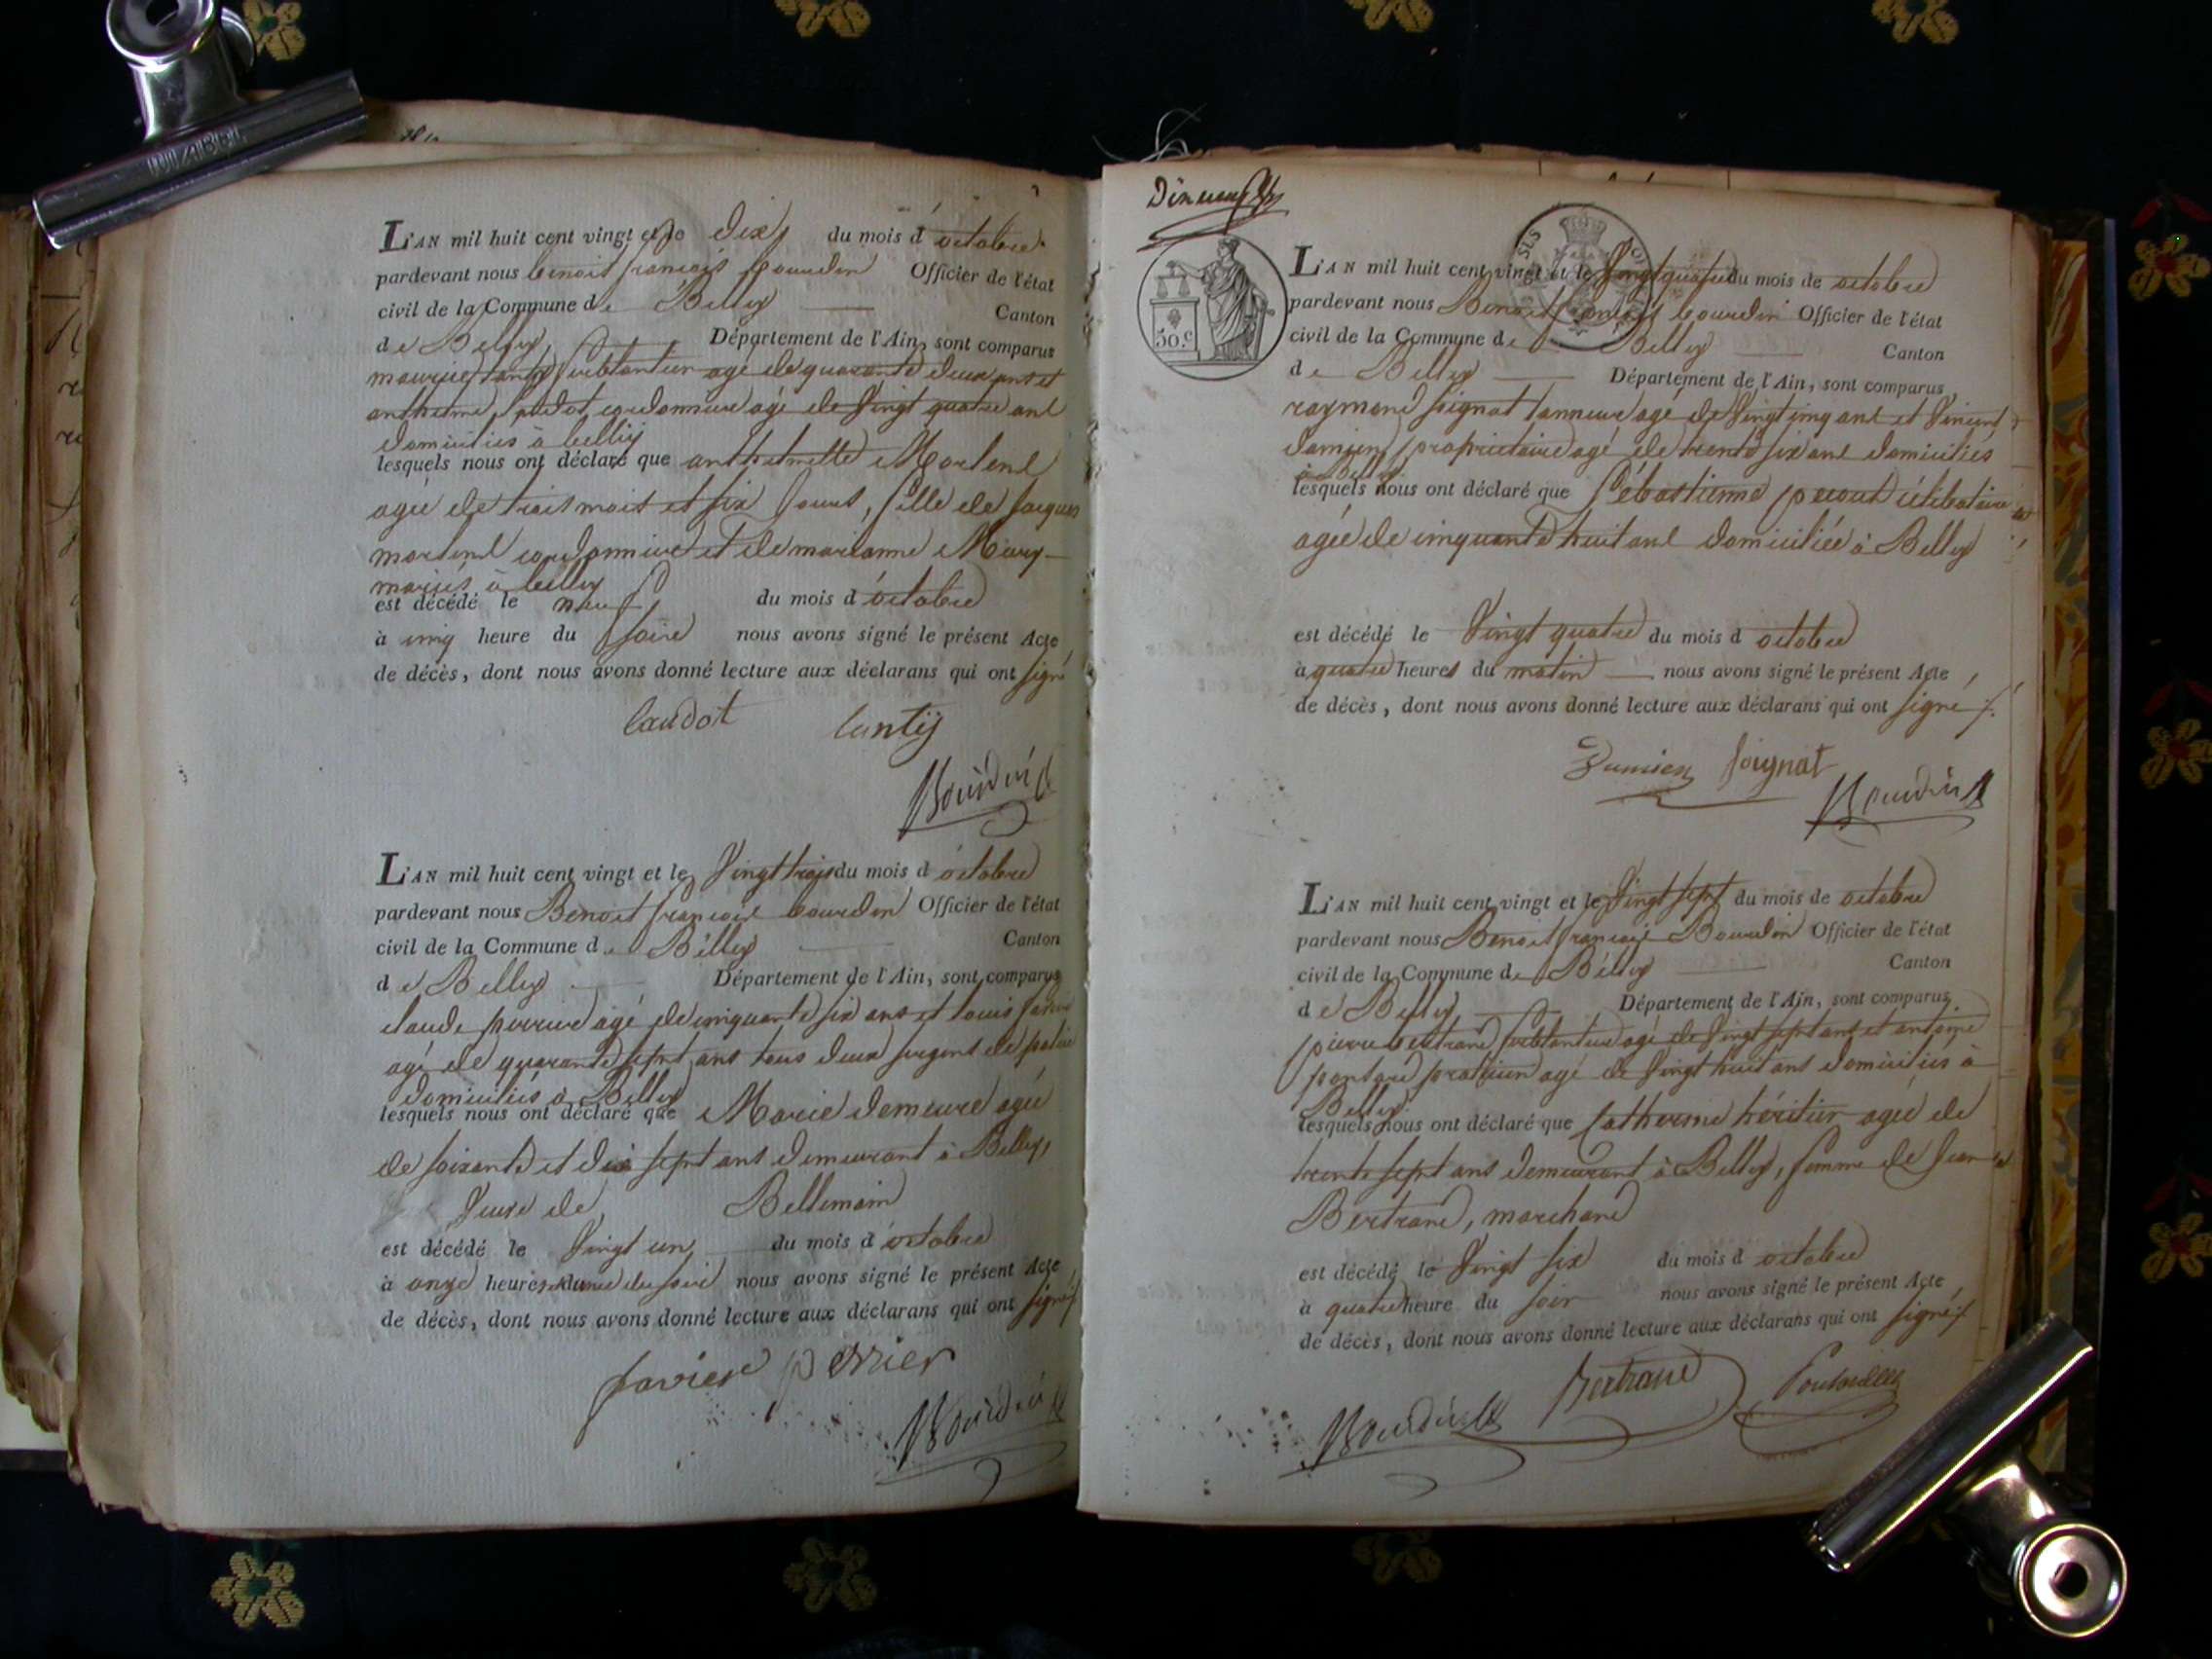 L'AN mil huit cent vingt et le dix du mois d'octobre
pardevant nous benoit françois bourdin Officier de l'état
civil de la Commune de Belley Canton
de Belley, Département de l'Ain, sont comparus
maurice âgé de quarante deux ans et
anthelme cordonnier âgé de vingt quatre ans
domiciliés à belley
lesquels nous ont déclaré que anthelmette
agée de trois mois et six jours, fille de jacques
cordonnier et de marianne Mury
mariés à belley
est décédé le neuf du mois d'octobre
à cinq heure du soire nous avons signé le présent Acte
de décès, dont nous avons donné lecture aux déclarans qui ont signé
Caudot Lantij
Bourdin
L'AN mil huit cent vingt et le vingt trois du mois d'octobre
pardevant nous Benoit françois bourdin Officier de l'état
civil de la Commune de Belley Canton
de Belley Département de l'Ain, sont comparus
claude perrier agé de cinquante six ans et louis
agé de quarante sept ans tous deux sergent de police
domiciliés à Belley
lesquels nous ont déclaré que Marie demeure agée
de soixante et dix sept ans demeurant à Belley,
veuve de Bellemain
est décédé le vingt un du mois d'octobre
à onze heures du soir nous avons signé le présent Acte
de décès, dont nous avons donné lecture aux déclarans qui ont signé
favier perrier
Bourdin
50.c
L'AN mil huit cent vingt et le vingt quatre du mois de octobre
pardevant nous Benoit françois bourdin Officier de l'état
civil de la Commune de Belley Canton
de Belley Département de l'Ain, sont comparus
raymond soignat tanneur agé de vingt cinq ans et vincent
damien propriétaire agé de trente six ans domiciliés
à Belley
lesquels nous ont déclaré que Sébastienne célibataire
agée de cinquante huit ans domiciliée à Belley
est décédé le vingt quatre du mois d octobre
à quatre heures du matin nous avons signé le présent Acte
de décès, dont nous avons donné lecture aux déclarans qui ont signé
Damien soignat
Bourdin
L'AN mil huit cent vingt et le vingt sept du mois de octobre
pardevant nous Benoit françois Bourdin Officier de l'état
civil de la Commune de Belley Canton
de Belley Département de l'Ain, sont comparus
pierre bertrand agé de vingt sept ans et antoine
praticien agé de vingt huit ans domiciliés à
Belley
lesquels nous ont déclaré que Catherine héritier agée de
trente sept ans demeurant à Belley, femme de jean
Bertrand, marchand
est décédé le vingt six du mois d octobre
à quatre heure du soir nous avons signé le présent Acte
de décès, dont nous avons donné lecture aux déclarans qui ont signé
Bourdin Bertrand